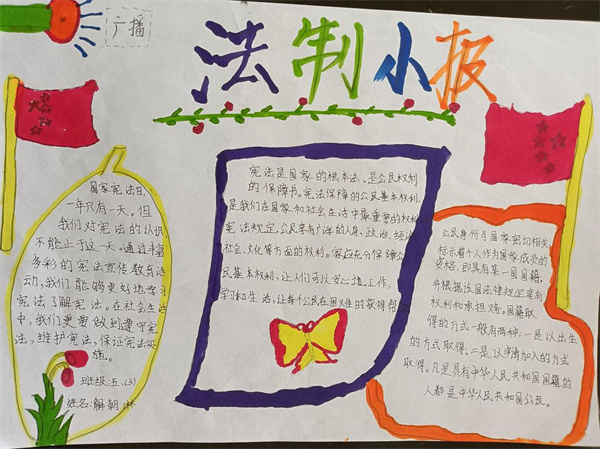 广播
法制小报
国家宪法日,
一年只有一天。但
我们对宪法的认识
不能止于这一天。通过丰富
多彩的宪法宣传教育活
动,我们能够更好地学习
宪法了解宪法。在社会生活
中,我们更要做到遵守宪
法,维护宪法,保证宪法实
施。
班级:五、(3)
姓名:解朝
宪法是国家的根本法,是公民权利
的保障书。宪法保障的公民基本权利,
是我们在国家和社会生活中最重要的权利
宪法规定公民享有广泛的人身、政治、经济
社会、文化等方面的权利。国家应充分保障公
民基本权利,让人们可以安心地工作、
学习和生活,让每个公民在困难时获得帮
公民身份与国家密切相关
标示着个人作为国家成员的
资格,即具有某一国国籍,
并根据该国法律规定享有
权利和承担义务。国籍取
得的方式一般有两种:一是以出生
的方式取得;二是以申请加入的方式
取得。凡是具有中华人民共和国国籍的
人都是中华人民共和国公民。